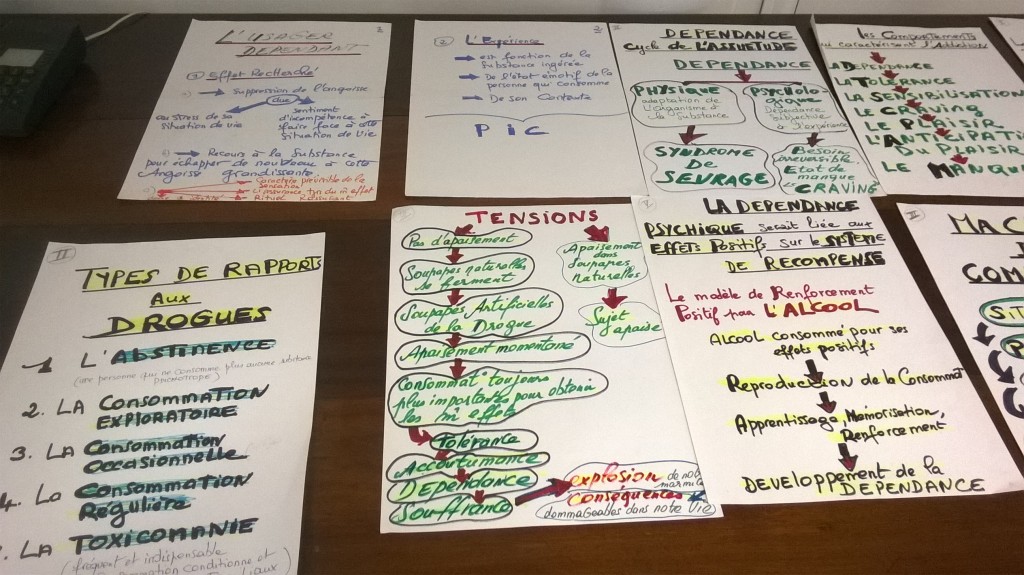 L'USAGER
DEPENDANT
① Effet Recherché
Suppression de l'angoisse
due
au stress de sa
situation de vie
sentiment
d'incompétence à
faire face à cette
situation de vie
Recours à la Substance
pour échapper de nouveau à cette
Angoisse grandissante.
Caractère prévisible de la
Sensation
② L'Expérience
est fonction de la
Substance ingérée
De l'état émotif de la
personne qui consomme
De son Contexte
PIC
DEPENDANCE
Cycle de L'ASSUETUDE
DEPENDANCE
PHYSIQUE
adaptation de
l'organisme à
la substance.
PSYCHOLO-
GIQUE
Dépendance
subjective
à l'expérience
SYNDROME
DE
SEVRAGE
Besoin
irréversible.
Etat de
manque
CRAVING
Les Comportements
qui caractérisent l'Addiction
LA DEPENDANCE
LA TOLERANCE
LA SENSIBILISATION
LE CRAVING
LE PLAISIR
L'ANTICIPATI
DU PLAISIR
LE MANQUE
II
TYPES DE RAPPORTS
AUX
DROGUES
1 L'ABSTINENCE
(une personne qui ne consomme plus aucune substance
psychotrope)
2. LA CONSOMMATION
EXPLORATOIRE
3. LA Consommation
Occasionnelle
4. La Consommation
Régulière
. LA TOXICOMANIE
(fréquent et indispensable
TENSIONS
Pas d'apaisement
Soupapes naturelles
se ferment
Soupapes Artificielles
de la Drogue
Apaisement momentané
Consommat° toujours
plus importantes pour obtenir
les m̂ effets
Tolérance
Accoutumance
DEPENDANCE
Souffrance
Apaisement
dans
soupapes
naturelles
Sujet
apaisé
explosion de notre
marmite
Conséquences
dommageables dans notre Vie
LA DEPENDANCE
PSYCHIQUE serait liée aux
EFFETS Positifs sur le SYSTEME
DE RECOMPENSE
Le modèle de Renforcement
Positif par L'ALCOOL
ALCOOL consommé pour ses
effets positifs
Reproduction de la Consommat°
Apprentissage, Mémorisation,
Renforcement
DEVELOPPEMENT de la
DEPENDANCE
II
MAC
COM